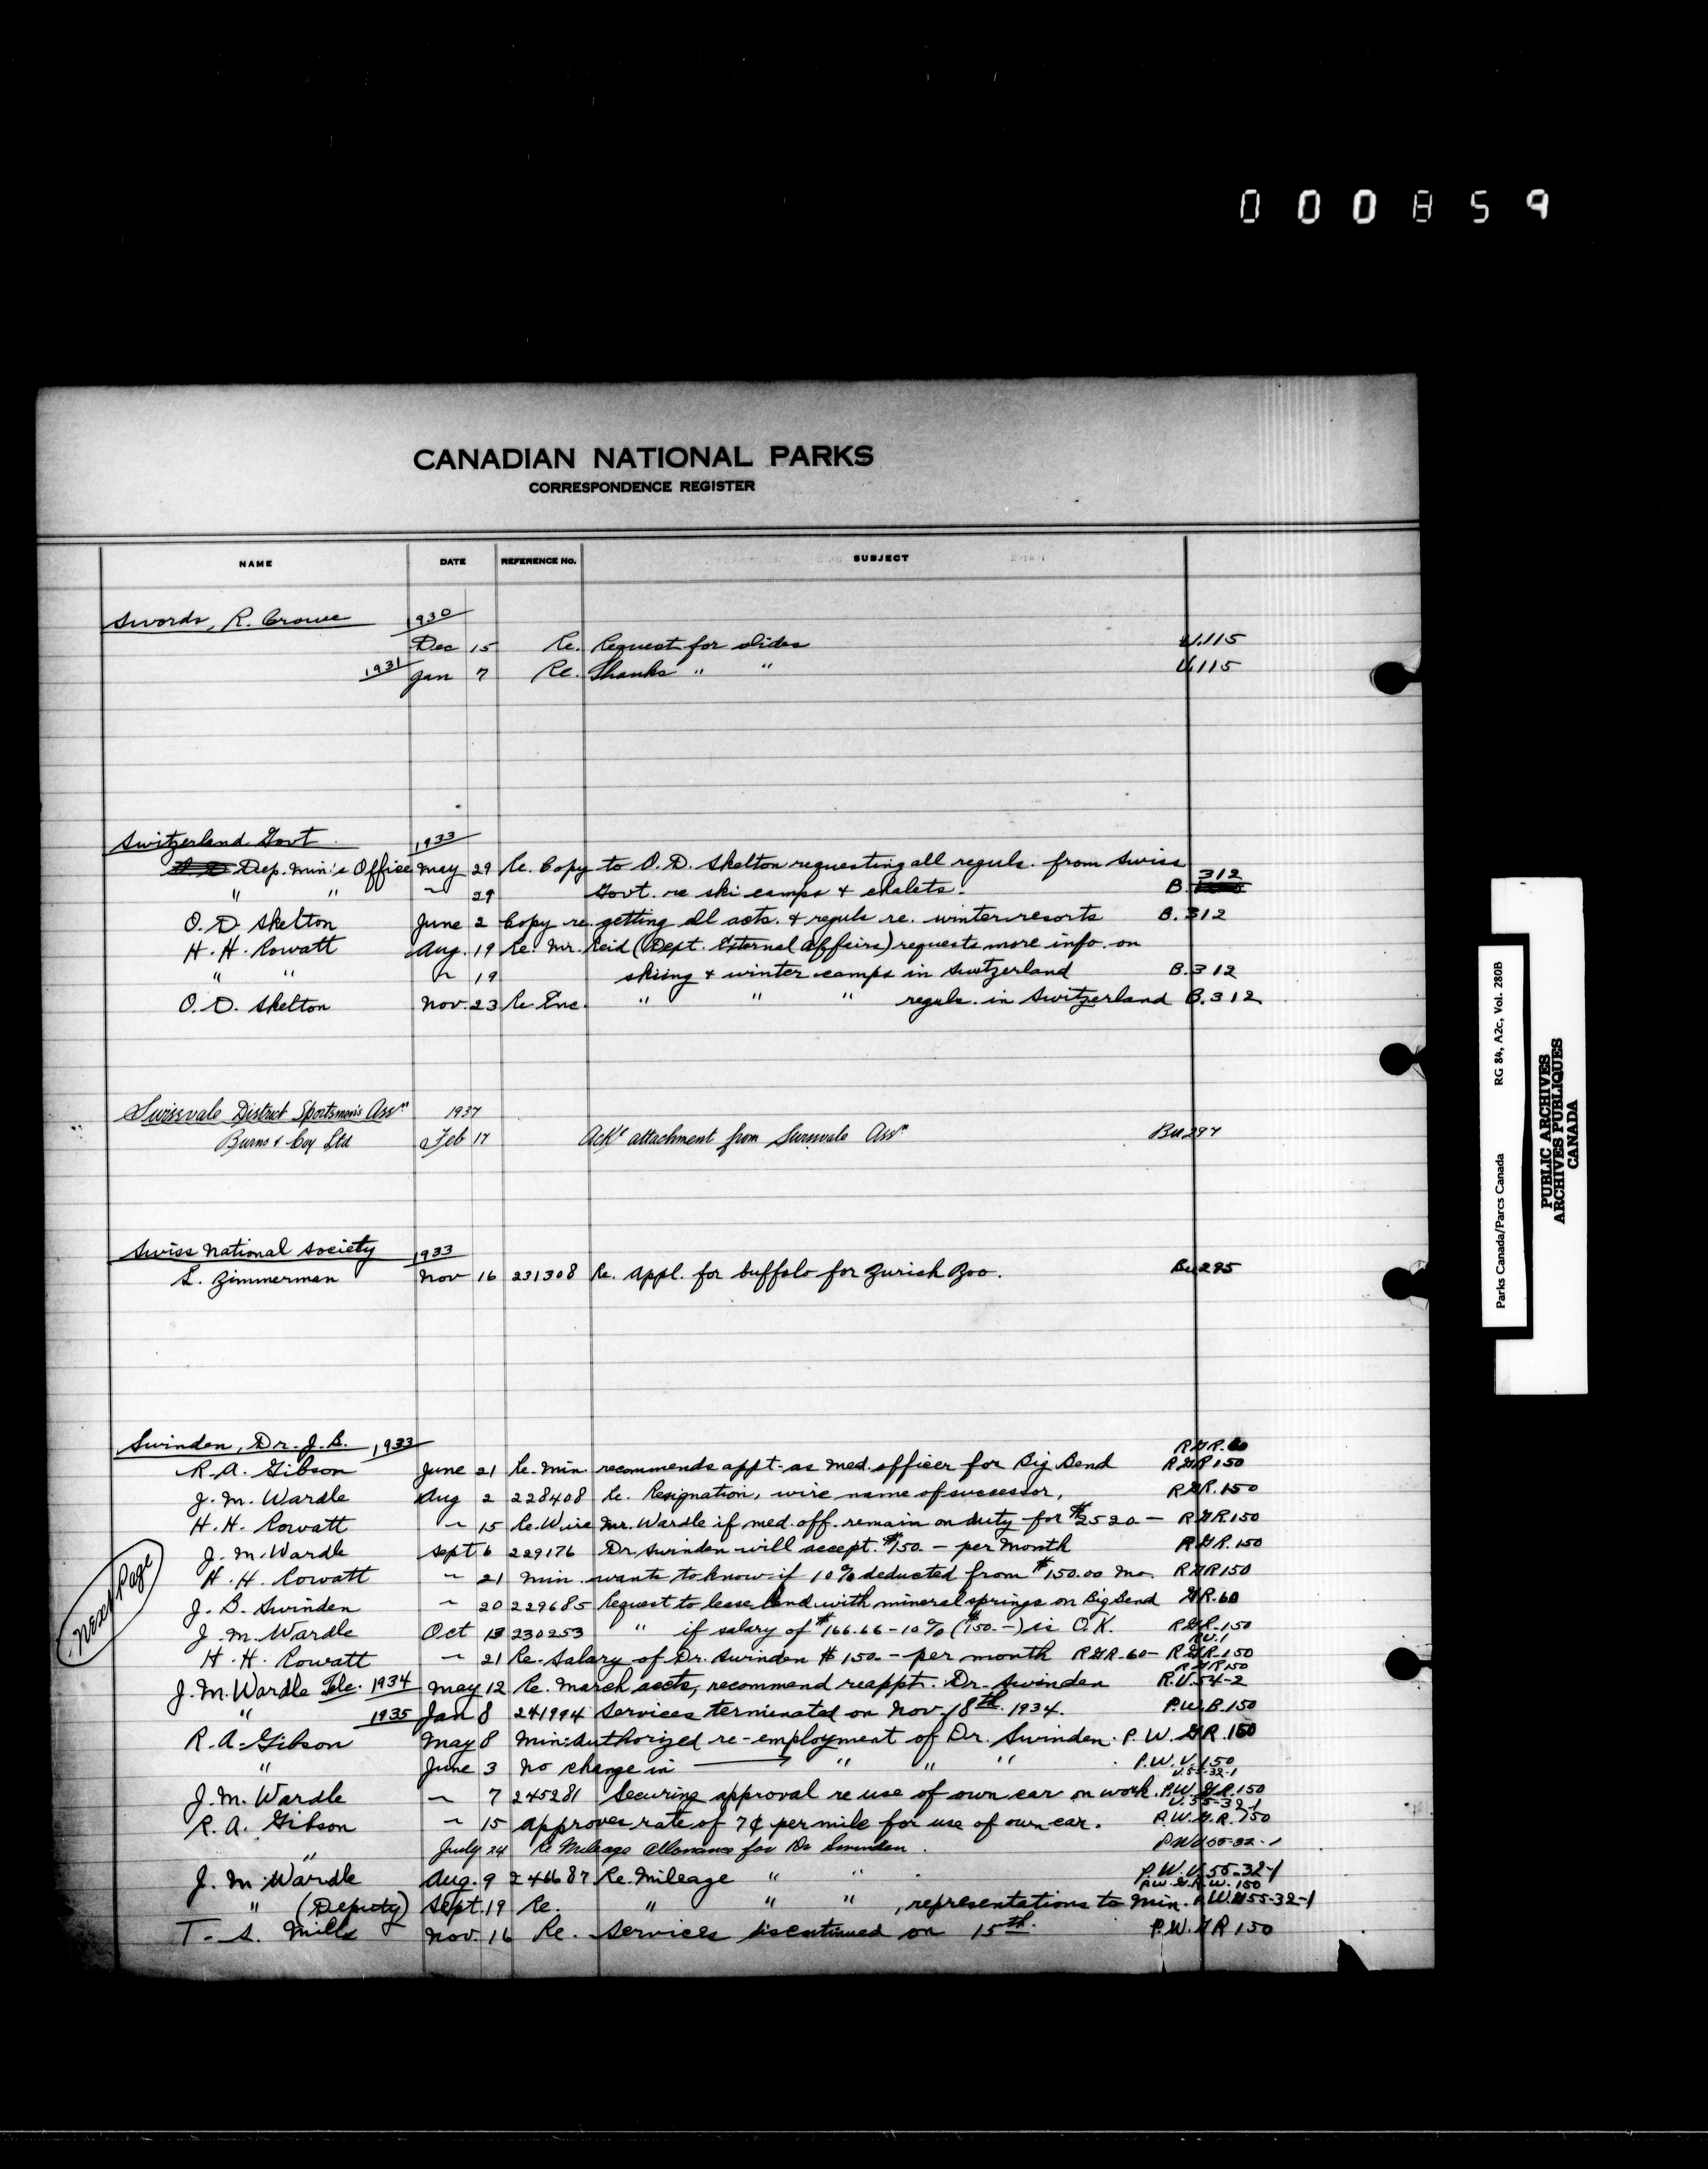 000859
CANADIAN NATIONAL PARKS
CORRESPONDENCE REGISTER
NAME DATE REFERENCE No. SUBJECT
Swords, R. Crowe 1930
Dec 15 Re. Request for slides U.115
1931 Jan 7 Re. Thanks " " U.115
Switzerland Govt. 1933
Dep. Min.'s Office May 29 Re. Copy to O. D. Skelton requesting all reguls. from Swiss
" " ~ 29 Govt. re ski camps & chalets. B. 312
O. D. Skelton June 2 Copy re. getting all acts. & reguls re. winter resorts B. 312
H. H. Rowatt Aug. 19 Re. Mr. Reid (Dept. External Affairs) requests more info. on
" " ~ 19 skiing & winter camps in Switzerland B. 312
O. D. Skelton Nov. 23 Re Enc. " " " reguls. in Switzerland B. 312
Swissvale District Sportsmen's Assn 1937
Burns & Coy Ltd Feb 17 Ack's attachment from Swissvale Assn Bu 297
Swiss National Society 1933
L. Zimmerman Nov 16 231308 Re. appl. for buffalo for Zurich Zoo. Bu 295
Swinden, Dr. J. B. 1933 RGR. 60
R. A. Gibson June 21 Re. Min. recommends appt. as med. officer for Big Bend RGR 150
J. M. Wardle Aug 2 228408 Re. Resignation, wire name of successor, RGR. 150
H. H. Rowatt ~ 15 Re. Wire Mr. Wardle if med. off. remain on duty for $2520 — RGR 150
J. M. Wardle Sept 6 229176 Dr Swinden will accept $150. — per month RGR. 150
H. H. Rowatt ~ 21 Min. wants to know if 10% deducted from $150.00 mo. RGR 150
J. B. Swinden ~ 20 229685 Request to lease land with mineral springs on Big Bend GR. 60
J. M. Wardle Oct 13 230253 " if salary of $166.66 - 10% ($150. —) is O.K. RGR. 150
RU. 1
H. H. Rowatt ~ 21 Re. Salary of Dr. Swinden $150. — per month RGR. 60 — RGR. 150
RGR 150
J. M. Wardle Tele. 1934 May 12 Re. March accts, recommend reappt. Dr. Swinden R.U. 54-2
" 1935 Jan 8 241994 Services terminated on Nov. 18th. 1934. P.W.B. 150
R. A. Gibson May 8 Min. authorized re-employment of Dr. Swinden. P. W. GR. 150
" June 3 No change in → " " " P.W.U. 150
U. 55-32-1
J. M. Wardle ~ 7 245281 Securing approval re use of own car on work. P.W. G.R. 150
U. 55-32-1
R. A. Gibson ~ 15 approves rate of 7¢ per mile for use of own car. P.W.G.R. 150
" July 24 Re Mileage Allowance for Dr Swinden. PWU 55-32-1
J. M. Wardle Aug. 9 246687 Re. Mileage " " P.W.U. 55-32-1
P.W.G.R.W. 150
" (Deputy) Sept. 19 Re. " " " , representations to Min. P.W.U 55-32-1
T. S. Mills Nov. 16 Re. Services discontinued on 15th. P.W.GR 150
Next Page
Parks Canada/Parcs Canada RG 84, A2c, Vol. 280B
PUBLIC ARCHIVES
ARCHIVES PUBLIQUES
CANADA